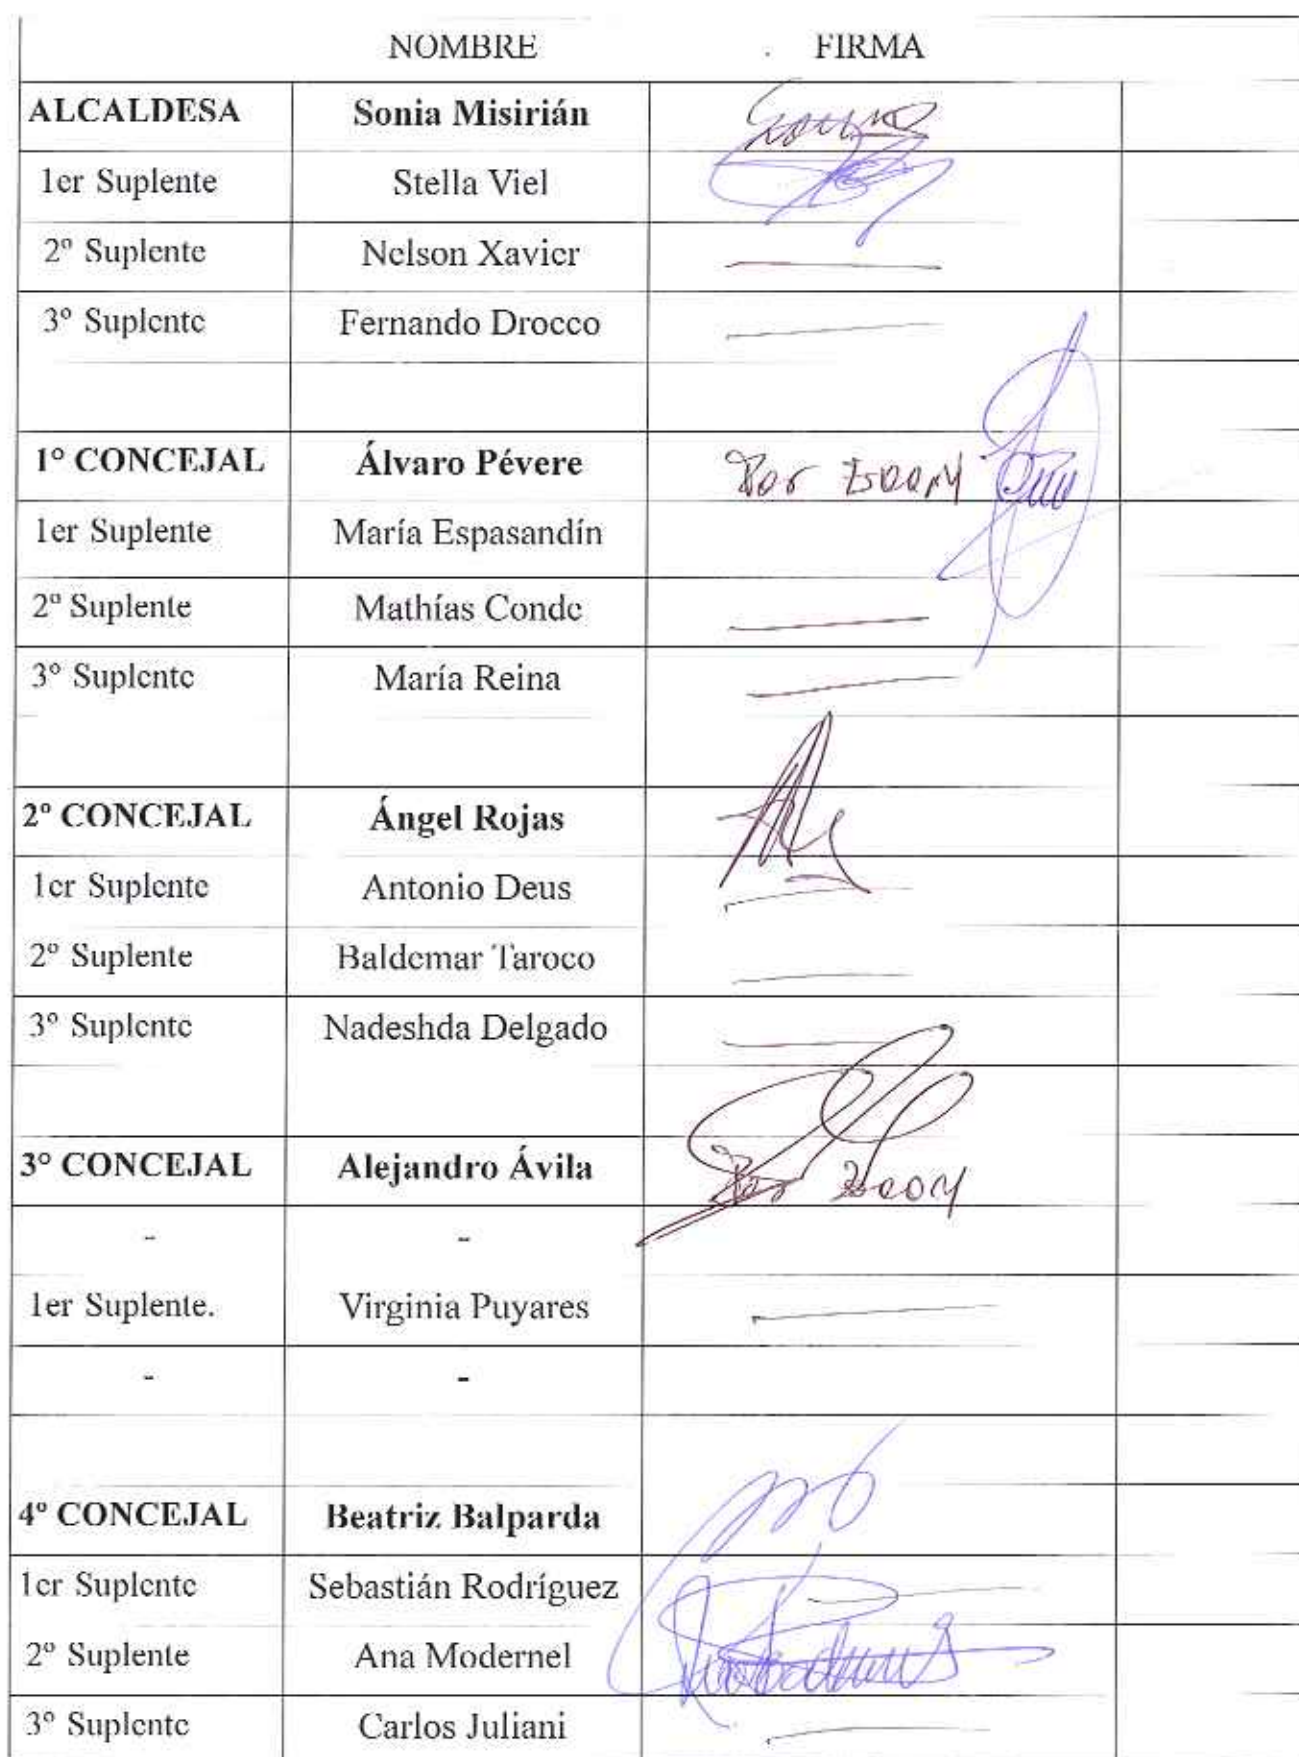 NOMBRE FIRMA
ALCALDESA Sonia Misirián
1er Suplente Stella Viel
2º Suplente Nelson Xavier
3º Suplente Fernando Drocco
1º CONCEJAL Álvaro Pévere Por Zoom
1er Suplente María Espasandín
2º Suplente Mathías Conde
3º Suplente María Reina
2º CONCEJAL Ángel Rojas
1er Suplente Antonio Deus
2º Suplente Baldemar Taroco
3º Suplente Nadeshda Delgado
3º CONCEJAL Alejandro Ávila Por Zoom
- -
1er Suplente. Virginia Puyares
- -
4º CONCEJAL Beatriz Balparda
1er Suplente Sebastián Rodríguez
2º Suplente Ana Modernel
3º Suplente Carlos Juliani